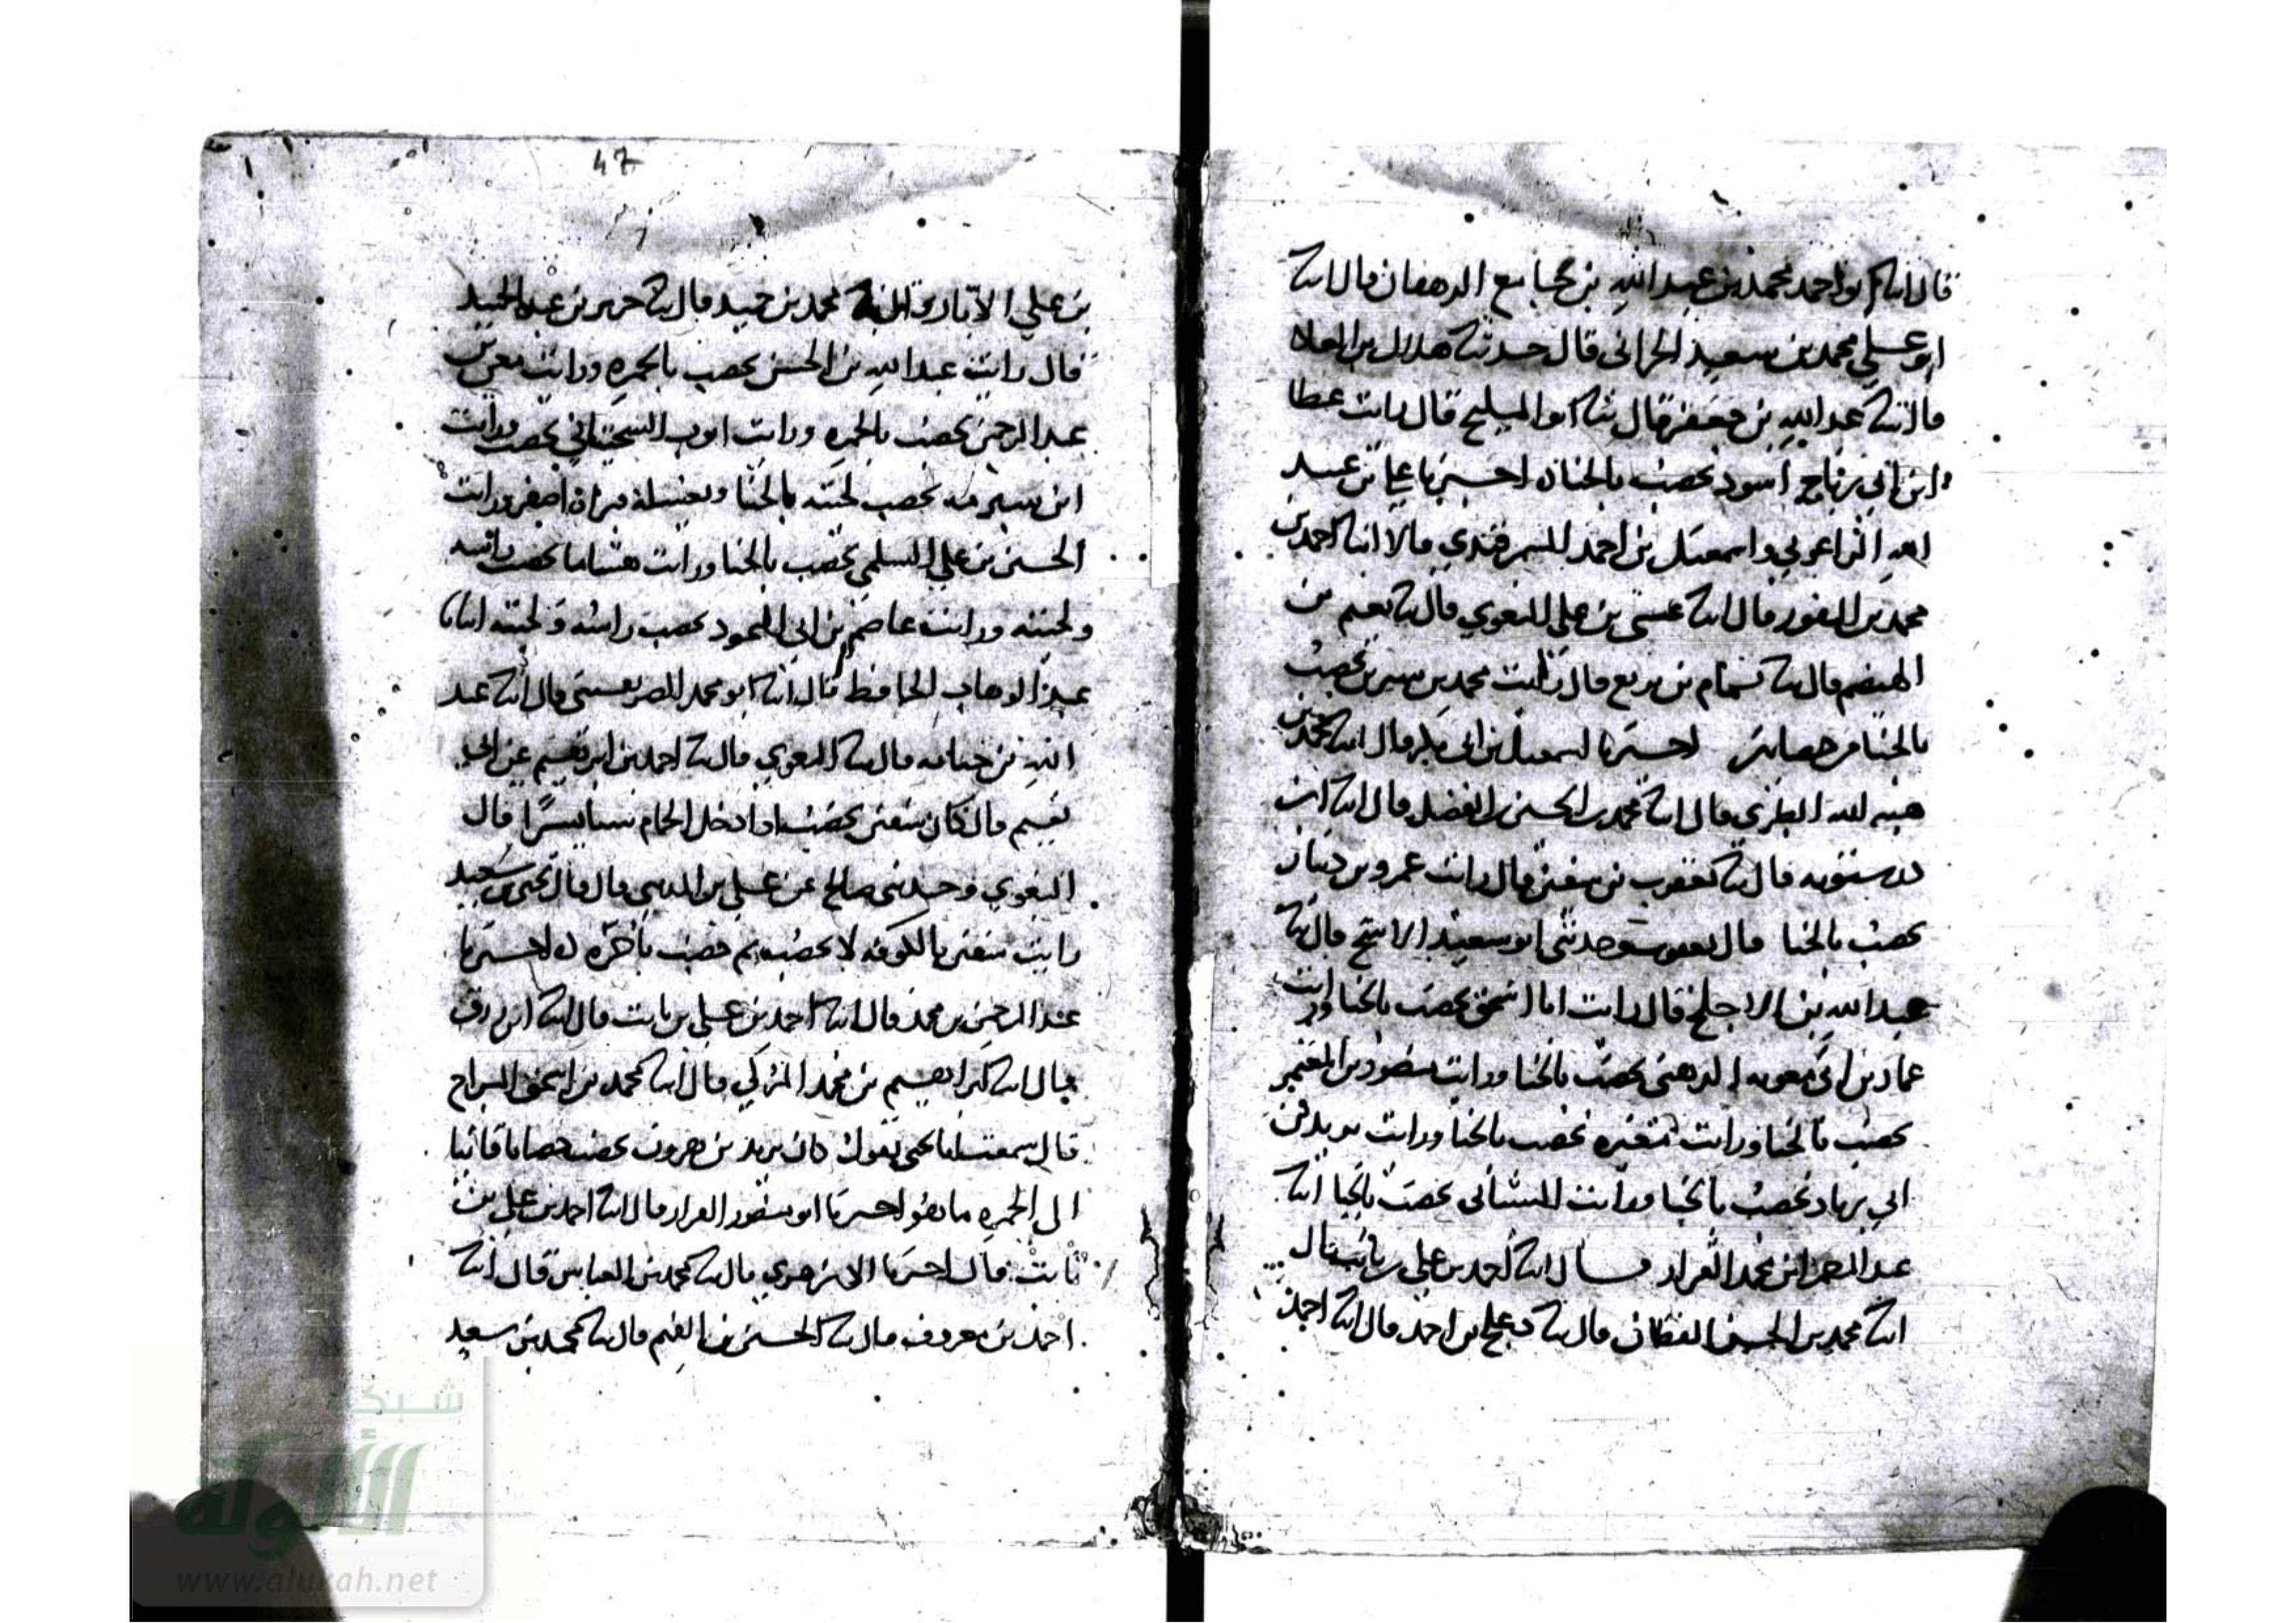 قال ابنا ابو احمد محمد بن عبد الله بن جامع الدهان قال ابنا
ابو علي محمد بن سعيد الحراني قال حدثنا هلال بن العلا
قال ثنا عبد الله بن جعفر قال ثنا ابو المليح قال رايت عطا
ابن ابي رباح اسود يخضب بالحنا اخبرنا علي بن عبيد
الله الزاغوني واسمعيل بن احمد السمرقندي قالا ابنا احمد بن
محمد بن النقور قال ابنا عيسى بن علي قال ثنا البغوي قال ثنا نعيم بن
الهيضم قال ثنا تمام بن بزيع قال رايت محمد بن سيرين يخضب
بالحنا اخبرنا اسمعيل بن ابي بكر قال ابنا محمد بن
هبة الله الطبري قال ابنا محمد بن الحسين بن الفضل قال ابنا ابن
درستويه قال ثنا يعقوب بن سفين قال رايت عمرو بن دينار
يخضب بالحنا قال يعقوب وحدثني ابو سعيد الاشج قال ثنا
عبد الله بن الاجلح قال رايت ابا اسحق يخضب بالحنا ورايت
عمار بن ابي معوية الدهني يخضب بالحنا ورايت منصور بن المعتمر
يخضب بالحنا ورايت مغيره يخضب بالحنا ورايت يزيد بن
ابي زياد يخضب بالحنا ورايت الشيباني يخضب بالحنا ابنا
عبد الرحمن بن محمد القزاز قال ابنا احمد بن علي بن ثابت قال
ابنا محمد بن الحسين القطان قال ثنا دعلج بن احمد قال ابنا احمد
47
بن علي الابار قال ثنا محمد بن حميد قال ثنا جرير بن عبد الحميد
قال رايت عبد الله بن الحسن يخضب بالحمره ورايت معن بن
عبد الرحمن يخضب بالحمره ورايت ايوب السختياني يخضب ورايت
ابن شبرمه يخضب لحيته بالحنا ويغسله فيراه اصفر ورايت
الحسن بن علي السلمي يخضب بالحنا ورايت هشاما يخضب راسه
ولحيته ورايت عاصم بن ابي النجود يخضب راسه ولحيته ابنانا
عبد الوهاب الحافظ قال ابنا ابو محمد الصريفيني قال ابنا عبد
الله بن حبابه قال ثنا البغوي قال ثنا احمد بن ابرهيم عن ابي
نعيم قال كان سفين يخضب اذا دخل الحمام شيا يسيرًا قال
البغوي وحدثني صالح عن علي بن المديني قال قال يحيى بن سعيد
رايت سفين بالكوفه لا يخضب ثم خضب باخره اخبرنا
عبد الرحمن بن محمد قال ابنا احمد بن علي بن ثابت قال ابنا ابن رزق
قال ابنا ابرهيم بن محمد المزكي قال ابنا محمد بن اسحق السراج
قال سمعت ابا يحيى يقول كان يزيد بن هرون يخضب خضابا قانيا
الى الحمره ما هو اخبرنا ابو منصور القزاز قال ابنا احمد بن علي بن
ثابت قال اخبرنا الازهري قال ثنا محمد بن العباس قال ابنا
احمد بن معروف قال ثنا الحسين بن الفهم قال ثنا محمد بن سعيد
شبكة
الألوكة
www.alukah.net